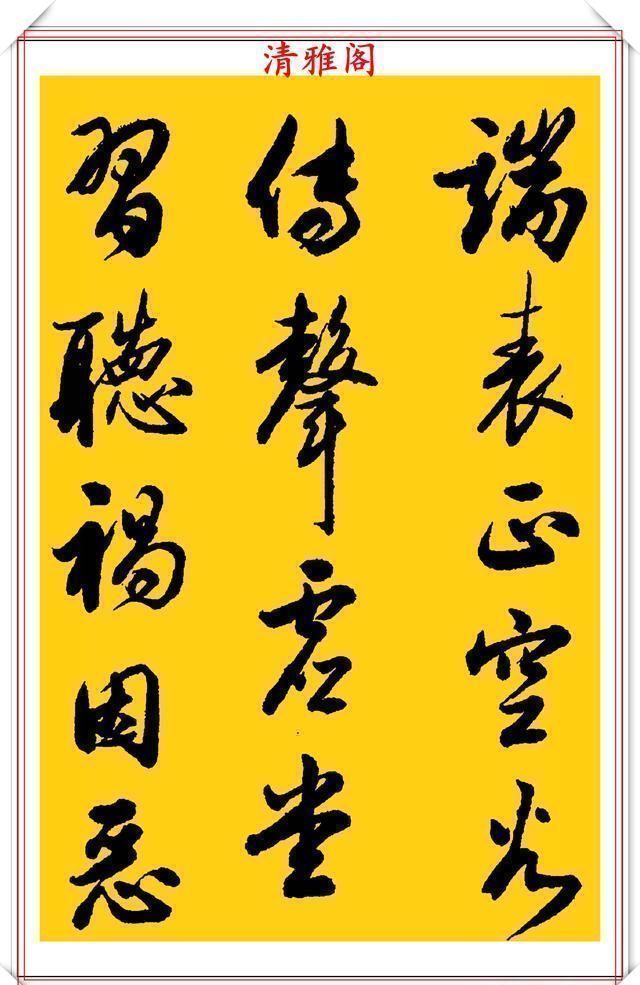 清雅阁
端表正空谷
傳聲虚堂
習聽禍因惡